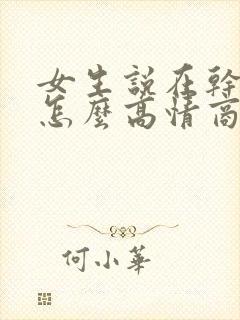 女生說在幹
怎麼高情商
何小華